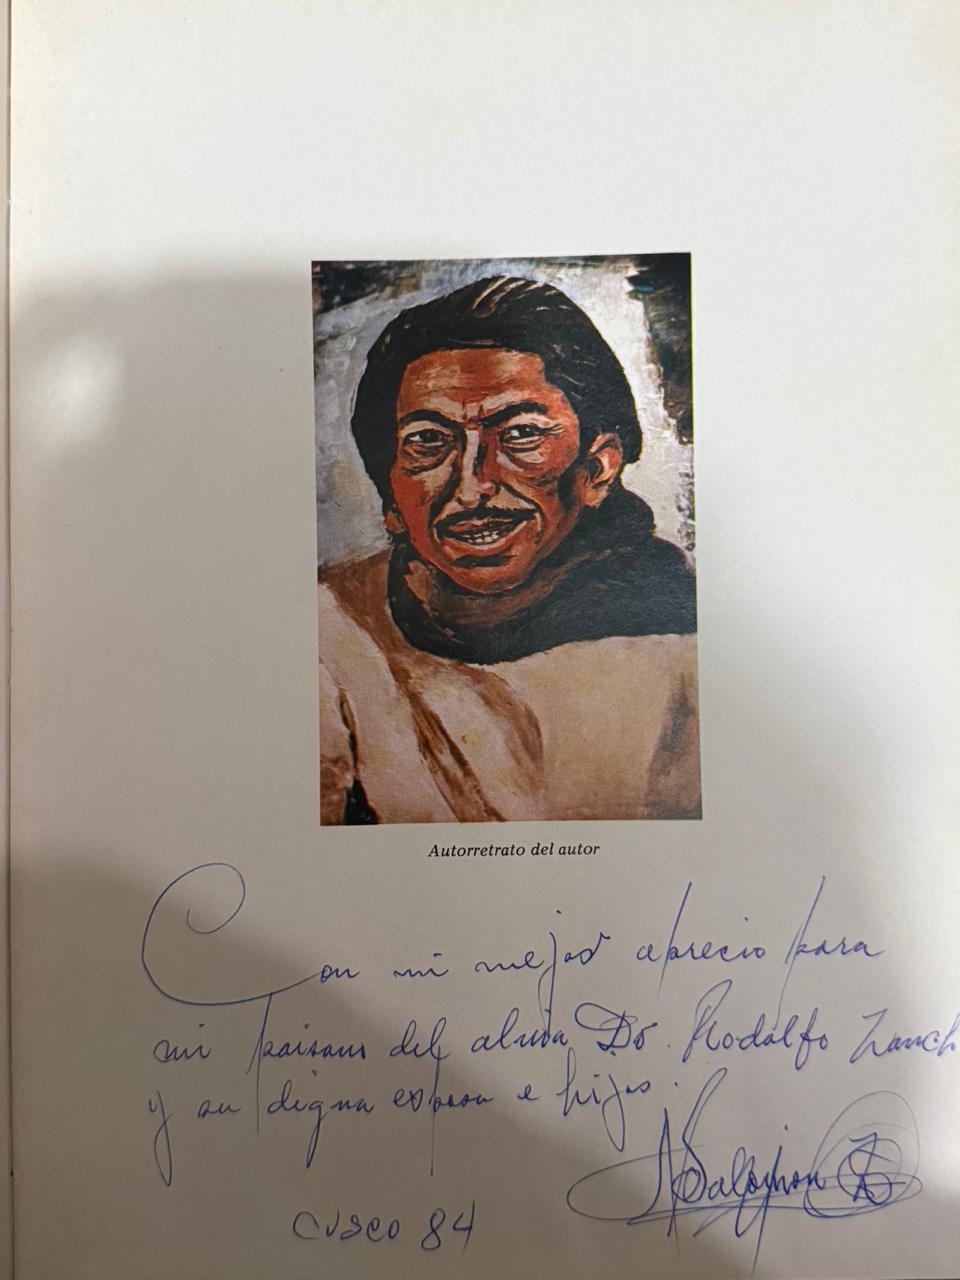 Autorretrato del autor
Con mi mejor aprecio para
mi paisano del alma Dr. Rodolfo Zanch
y su digna esposa e hijos.
Salomon
Cusco 84